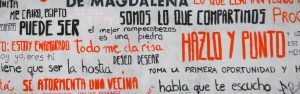 DE MAGDALENA
ME CAIRO, EGIPTO
SOMOS LO QUE COMPARTIMOS
PUEDE SER
el mejor rompecabezas
es una piedra
HAZLO Y PUNTO
ESTOY ENAMORADO
todo me da risa
soy yo, eres tú
DESEO DESEAR
tiene que ser la hostia
TOMA LA PRIMERA OPORTUNIDAD Y
SE ATORMENTA UNA VECINA
habla que te escucho